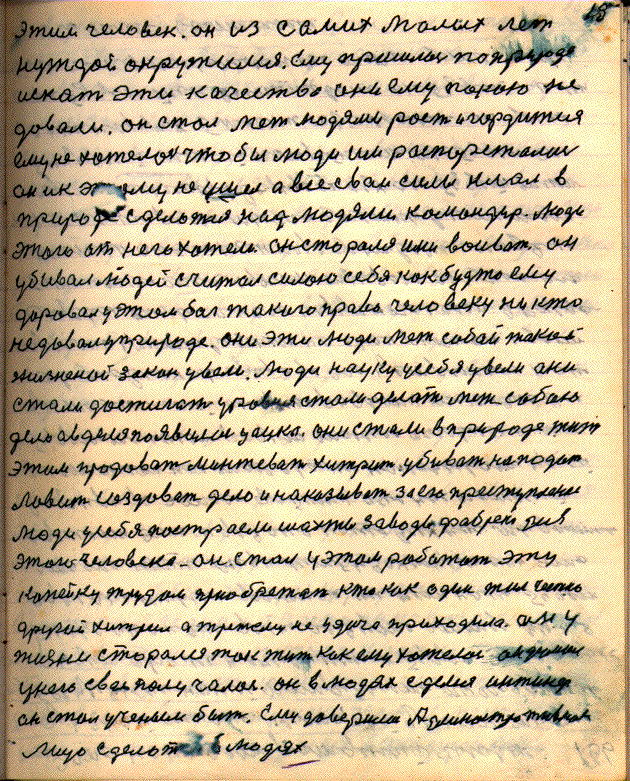 25
этим человек. он из самих малих лет
нуждой окружился. Ему пришлось по природе
искат эти качества они ему покою не
довали. он стал мет людями рост и гордится
ему не хотелос чтобы люди им распоресталис
он и к этому не ушел а все сваи сили клал в
природе сделатся над людями командир. люди
этого от него хотели. он старался ими воиват. он
убивал людей считал силою себя как будто ему
даровал у этом бог такого права человеку ни кто
не довал у природе. они эти люди мет собой такой
жизненой закон увели. Люди науку у себя увели они
стали достигат уровня стали делат мет собою
дело а в деля появилас наука. они стали в природе жит
этим продоват ментеват хитрит, убиват нападат
ловит создоват дело и наказыват за его преступление
люди у себя построели шахти заводи фабреки для
этого человека. он стал у этом работат эту
капейку трудом приобретат кто как один жил честно
другой хитрил а третему не удача приходила. он у
жизни старался так жит как ему хотелос
у него свае получалос. он в людях сделся
он стал ученым быт. Ему доверили Административное
лицо сделат в людях